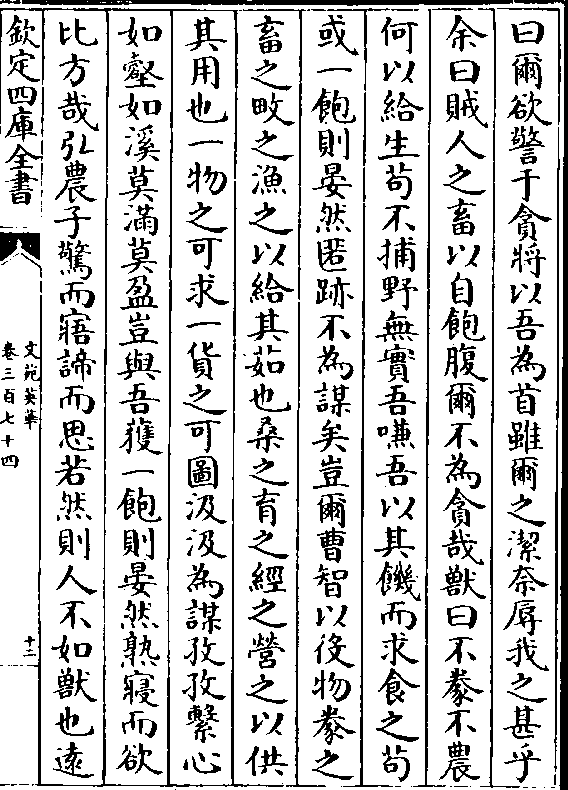 曰爾欲警于貪將以吾為首雖爾之潔奈辱我之甚乎
余曰賊人之畜以自飽腹爾不為貪哉獸曰不豢不農
何以給生苟不捕野無實吾嗛吾以其饑而求食之苟
或一飽則晏然匿跡不為謀矣豈爾曹智以役物豢之
畜之畋之漁之以給其茹也桑之育之經之營之以供
其用也一物之可求一貨之可圖汲汲為謀孜孜繫心
如壑如溪莫滿莫盈豈與吾獲一飽則晏然熟寢而欲
比方哉弘農子驚而寤諦而思若然則人不如獸也遠
欽定四庫全書
文苑英華
卷三百七十四
十二